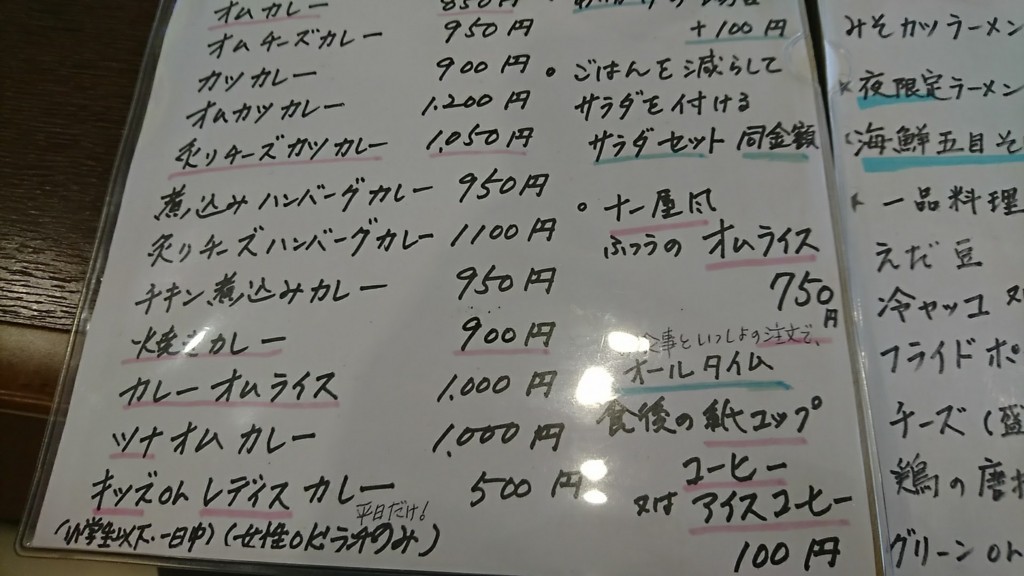 オムカレー 850円
オムチーズカレー 950円
カツカレー 900円
オムカツカレー 1,200円
炙りチーズカツカレー 1,050円
煮込みハンバーグカレー 950円
炙りチーズハンバーグカレー 1100円
チキン煮込みカレー 950円
焼きカレー 900円
カレーオムライス 1,000円
ツナオムカレー 1,000円
キッズorレディスカレー 500円
平日だけ!
(小学生以下・一日中)(女性orランチのみ)
+100円
・ごはんを減らして
サラダを付ける
サラダセット 同金額
・十一屋風
ふつうの オムライス
750円
食事といっしょの注文で、
オールタイム
食後の紙コップ
コーヒー
又は アイスコーヒー
100円
みそカツラーメン
夜限定ラーメン
海鮮五目そ
一品料理
えだ豆
冷ヤッコ 又
フライドポ
チーズ(盛
鶏の唐
グリーンor